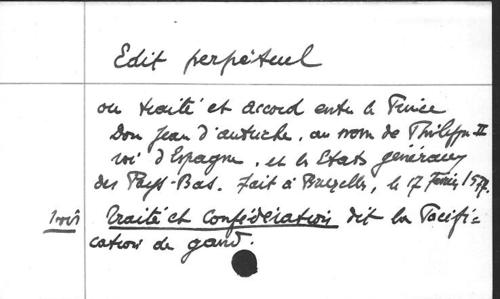 Edit perpétuel
ou traité et accord entre le Prince
Don Jean d'autriche, au nom de Philippe II
roi d'Espagne, et les Etats généraux
des Pays-Bas. Fait à Bruxelles, le 17 Février 1577.
Traité et Confédération dit la Pacifi-
cation de gand.